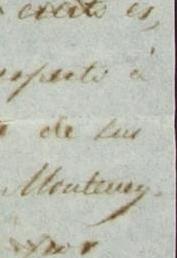 cierto es,
respecto á
de sus
Monterey.